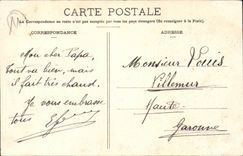 CARTE POSTALE
La Correspondance au recto n'est pas acceptée par tous les pays étrangers (Se renseigner à la Poste).
CORRESPONDANCE
ADRESSE
Mon cher Papa,
Tout va bien, mais
il fait très chaud.
Je vous embrasse
tous
Monsieur Vouis
Villemur
Haute
Garonne